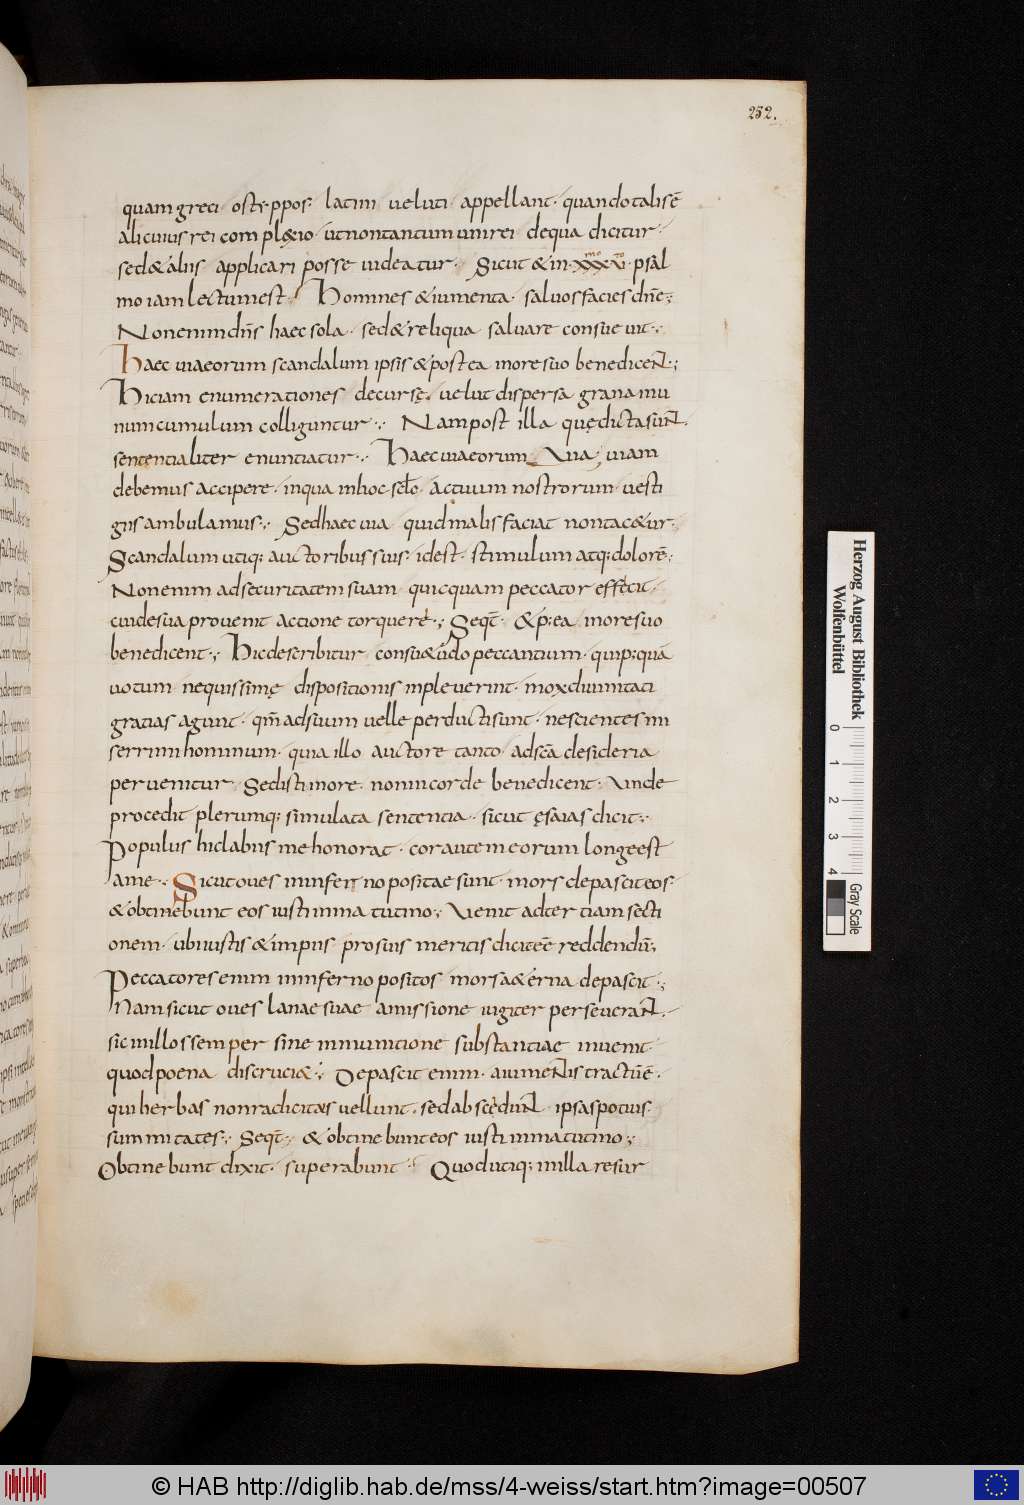 252.
quam greci osteppos· latini veluti appellant· quando talis ē
alicuius rei complexio ut non tantum uni rei de qua dicitur·
sed & aliis applicari posse videatur· Sicut & in· xxxv· psal
mo iam lectum est· Homines & iumenta· salvos facies dñe;
Non enim dñs haec sola· sed & reliqua salvare consuevit·
Haec via eorum scandalum ipsis & postea in ore suo benedicent·;
Hic iam enumerationes decurse· velut dispersa grana in u
num cumulum colliguntur· Nam post illa quę dicta sunt·
sententialiter enuntiatur· Haec via eorum Qua viam
debemus accipere· in qua in hoc sclo· actuum nostrorum vesti
giis ambulamus· Sed haec via quid malis faciat non tac&ur·
Scandalum utiq; auctoribus suis· idest· stimulum atq; dolorē·
Non enim ad securitatem suam quicquam peccator effecit·
cui de sua provenit accione torqueri·; Seqt· & p; ea in ore suo
benedicent·; Hic describitur consu&udo peccantium· quip; qui
votum nequissimę dispositionis impleverint· mox divinitati
gratias agunt· qm̄ ad suum velle perducti sunt· nescientes mi
serrimi hominum· quia illo auctore tanto ad scā desideria
pervenitur· Sed isti in ore· non in corde benedicent· Unde
procedit plerumq; simulata sententia· sicut ęsaias dicit·
Populus hic labiis me honorat· cor autem eorum longe est
a me· Sicut oves in inferno positae sunt· mors depascit eos·
& obtinebunt eos iusti in matutino·; Venit ad tertiam secti
onem· ubi iustis & impiis pro suis meritis dicit eē reddendū;
Peccatores enim in inferno positos mors a&erna depascit·;
Nam sicut oves lanae suae amissione iugiter perseverant·
sic in illos semper sine inminutione substantiae invenit·
quod poena discruci&· Depascit enim· a iumentis tractū ē·
qui herbas non radicitus vellunt· sed abscedunt ipsas potius·
summitates·; Seqt·; & obtinebunt eos iusti in matutino·;
Obtinebunt dixit· superabunt· Quod utiq; in illa resur
Herzog August Bibliothek
Wolfenbüttel
0 1 2 3 4
Gray Scale
© HAB http://diglib.hab.de/mss/4-weiss/start.htm?image=00507